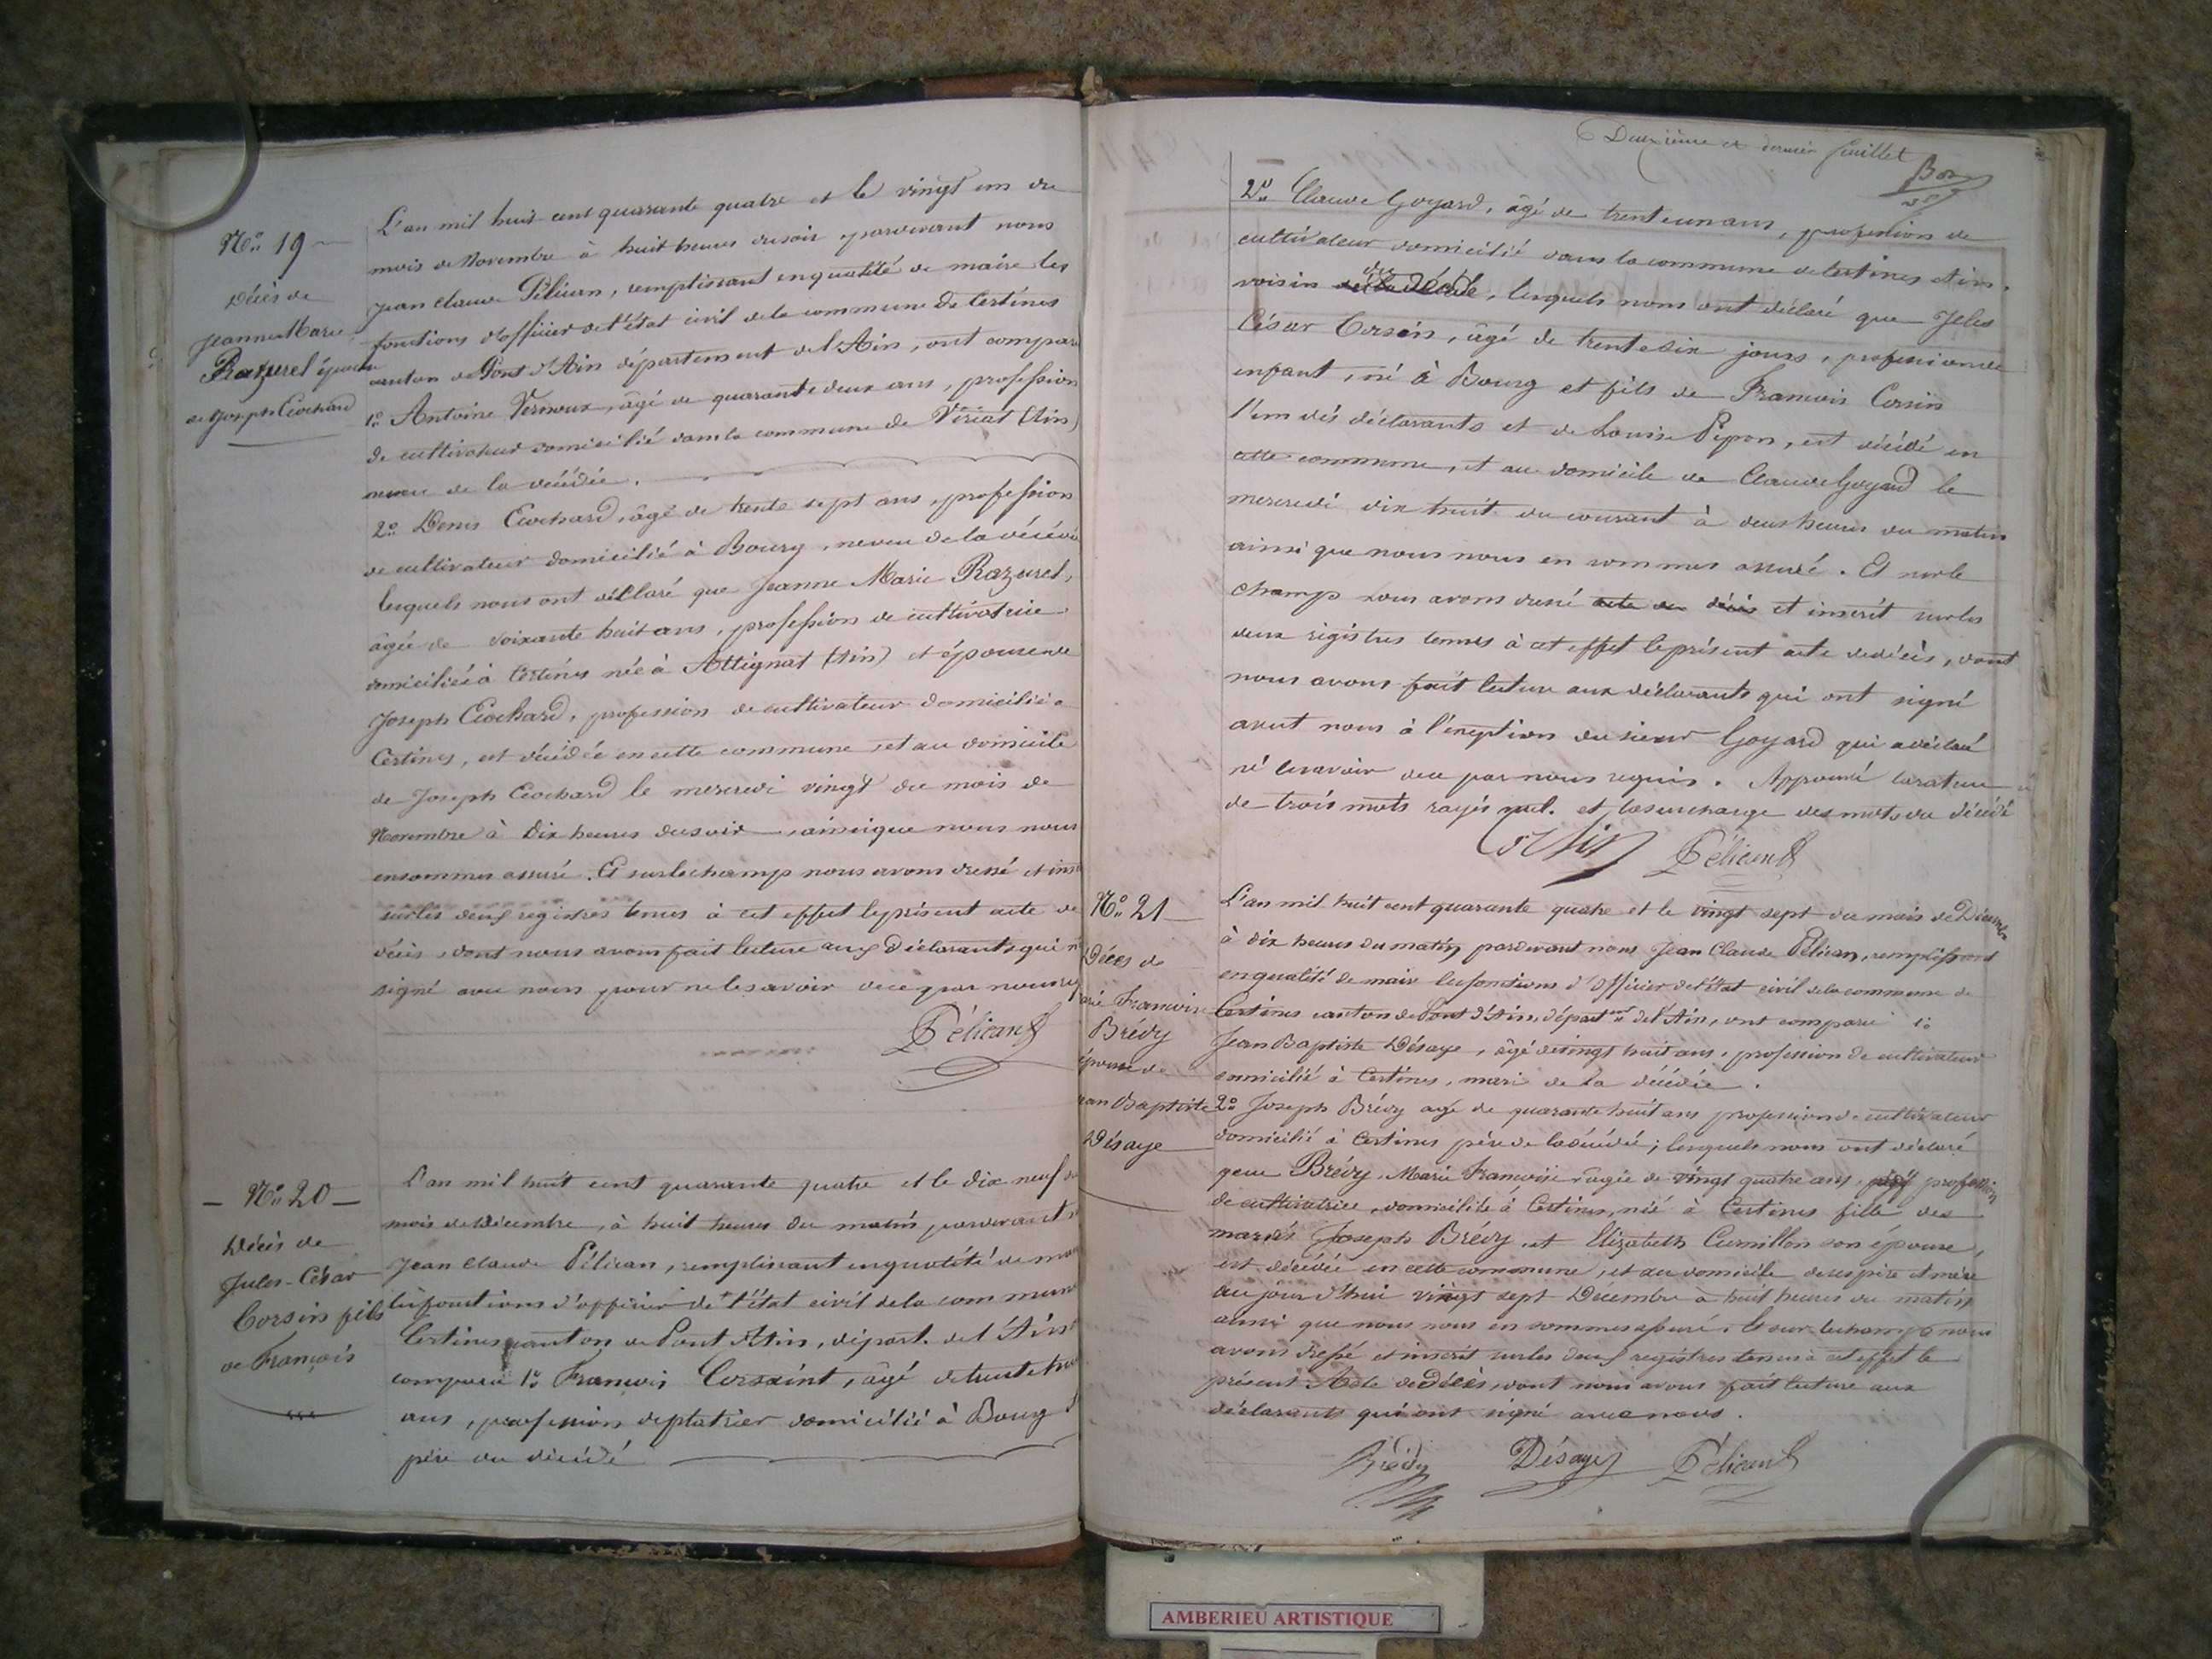 N° 19
Décès de
Jeanne Marie
Razurel épouse
de Joseph Ecochard
L'an mil huit cent quarante quatre et le vingt un du
mois de Novembre à huit heures du soir pardevant nous
Jean Claude Pélican, remplissant en qualité de maire les
fonctions d'officier de l'état civil de la commune de Certines
canton de Pont d'Ain département de l'Ain, ont comparu
1° Antoine Vernoux, âgé de quarante deux ans, profession
de cultivateur domicilié dans la commune de Viriat (Ain)
neveu de la décédée.
2° Denis Ecochard, âgé de trente sept ans, profession
de cultivateur domicilié à Bourg, neveu de la décédée
lesquels nous ont déclaré que Jeanne Marie Razurel,
âgée de soixante huit ans, profession de cultivatrice
domiciliée à Certines née à Attignat (Ain) et épouse de
Joseph Ecochard, profession de cultivateur domicilié à
Certines, est décédée en cette commune, et au domicile
de Joseph Ecochard le mercredi vingt du mois de
Novembre à dix heures du soir, ainsi que nous nous
en sommes assuré. Et sur le champ nous avons dressé et ins
sur les deux registres tenus à cet effet le présent acte de
décès, dont nous avons fait lecture aux déclarants qui n'
signé avec nous pour ne le savoir de ce par nous req
Pélican
— N° 20 —
Décès de
Jules-César
Corsin fils
de François
L'an mil huit cent quarante quatre et le dix neuf du
mois de décembre, à huit heures du matin, pardevant
Jean Claude Pélican, remplissant en qualité de maire
les fonctions d'officier de l'état civil de la commune
Certines canton de Pont d'Ain, départ. de l'Ain
comparu 1° François Corsaint, âgé de trente
ans, profession de platrier domicilié à Bourg
père du décédé
Deuxième et dernier feuillet
2° Claude Goyard, âgé de trente un ans, profession de
cultivateur domicilié dans la commune de Certines Ain.
voisin du décédé, lesquels nous ont déclaré que Jules
César Corsin, âgé de trente six jours, profession de
enfant, né à Bourg et fils de François Corsin
l'un des déclarants et de Louise Pepon, est décédé en
cette commune, et au domicile de Claude Goyard le
mercredi dix huit du courant à deux heures du matin
ainsi que nous nous en sommes assuré. Et sur le
champ nous avons dressé acte de décès et inscrit sur les
deux régistres tenus à cet effet le présent acte de décès, dont
nous avons fait lecture aux déclarants qui ont signé
avec nous à l'éxeption du sieur Goyard qui a déclaré
ne le savoir de ce par nous requis. Approuvé la rature
de trois mots rayés nul. et la surcharge des mots du décédé
Corsin Pélican
N° 21
Décès de
arie Francoise
Brédy
épouse de
ean Baptiste
Désaye
L'an mil huit cent quarante quatre et le vingt sept du mois de Décembre
à dix heures du matin, pardevant nous Jean Claude Pélican, remplissant
en qualité de maire les fonctions d'Officier de l'état civil de la commune de
Certines canton de Pont d'Ain, départ.nt de l'Ain, ont comparu 1°
Jean Baptiste Désaye, âgé de vingt huit ans, profession de cultivateur
domicilié à Certines, mari de la décédée.
2° Joseph Brédy agé de quarante huit ans profession de cultivateur
domicilié à Certines père de la décédée; lesquels nous ont déclaré
que Brédy, Marie Francoise âgée de vingt quatre ans, profession
de cultivatrice, domiciliée à Certines, née à Certines fille des
mariés Joseph Brédy, et Elizabeth Curnillon son épouse,
est décédée en cette commune, et au domicile de ses père et mère
au jour d'hui vingt sept Décembre à huit heures du matin
ainsi que nous nous en sommes assuré. Et sur le champ nous
avons dressé et inscrit sur les deux registres tenus à cet effet le
présent Acte de décès, dont nous avons fait lecture aux
déclarants qui ont signé avec nous.
Brédy Désaye Pélican
AMBERIEU ARTISTIQUE